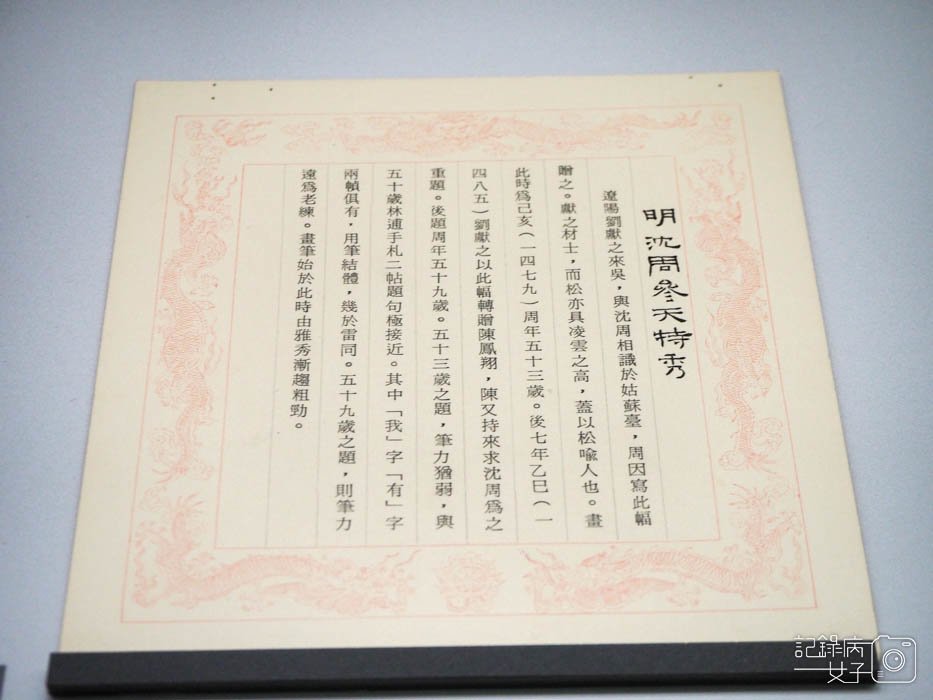 明沈周參天特秀
遼陽劉獻之來吳，與沈周相識於姑蘇臺，周因寫此幅
贈之。獻之材士，而松亦具凌雲之高，蓋以松喻人也。畫
此時為己亥（一四七九）周年五十三歲。後七年乙巳（一
四八五）劉獻之以此幅轉贈陳鳳翔，陳又持來求沈周為之
重題。後題周年五十九歲。五十三歲之題，筆力猶弱，與
五十歲林逋手札二帖題句極接近。其中「我」字「有」字
兩幀俱有，用筆結體，幾於雷同。五十九歲之題，則筆力
遠為老練。畫筆始於此時由雅秀漸趨粗勁。
記錄病
女子